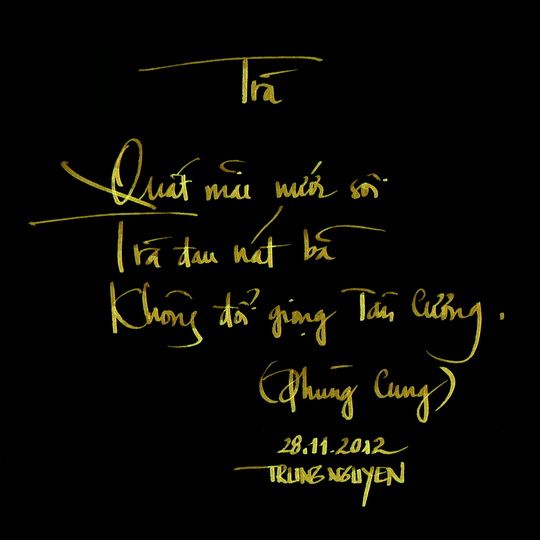 Trà
Quất mãi nước sôi
Trà đau nát bã
Không đổi giọng Tân Cương.
(Phùng Cung)
28.11.2012
TRUNG NGUYEN